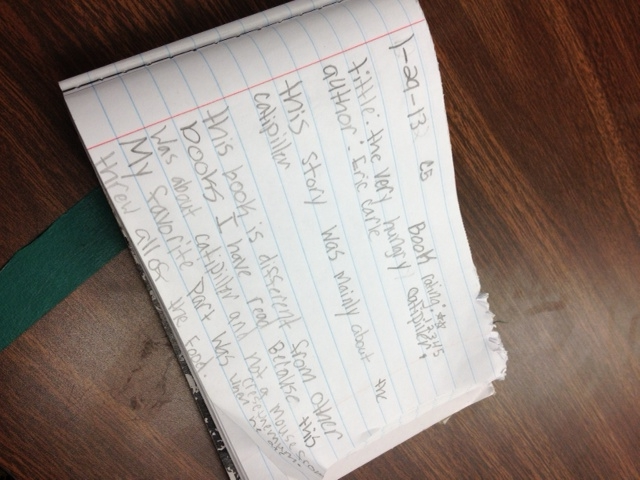 1-29-13 C5 Book rating: ** 1 2 3 4 5
tittle: the very hungry catipiller.
author: Eric Carle
this story was mainly about the
catipiller
this book is different from other
books I have read Because this
was about catipiller and not a mouse
My favorite part was when he
threw all of the food.